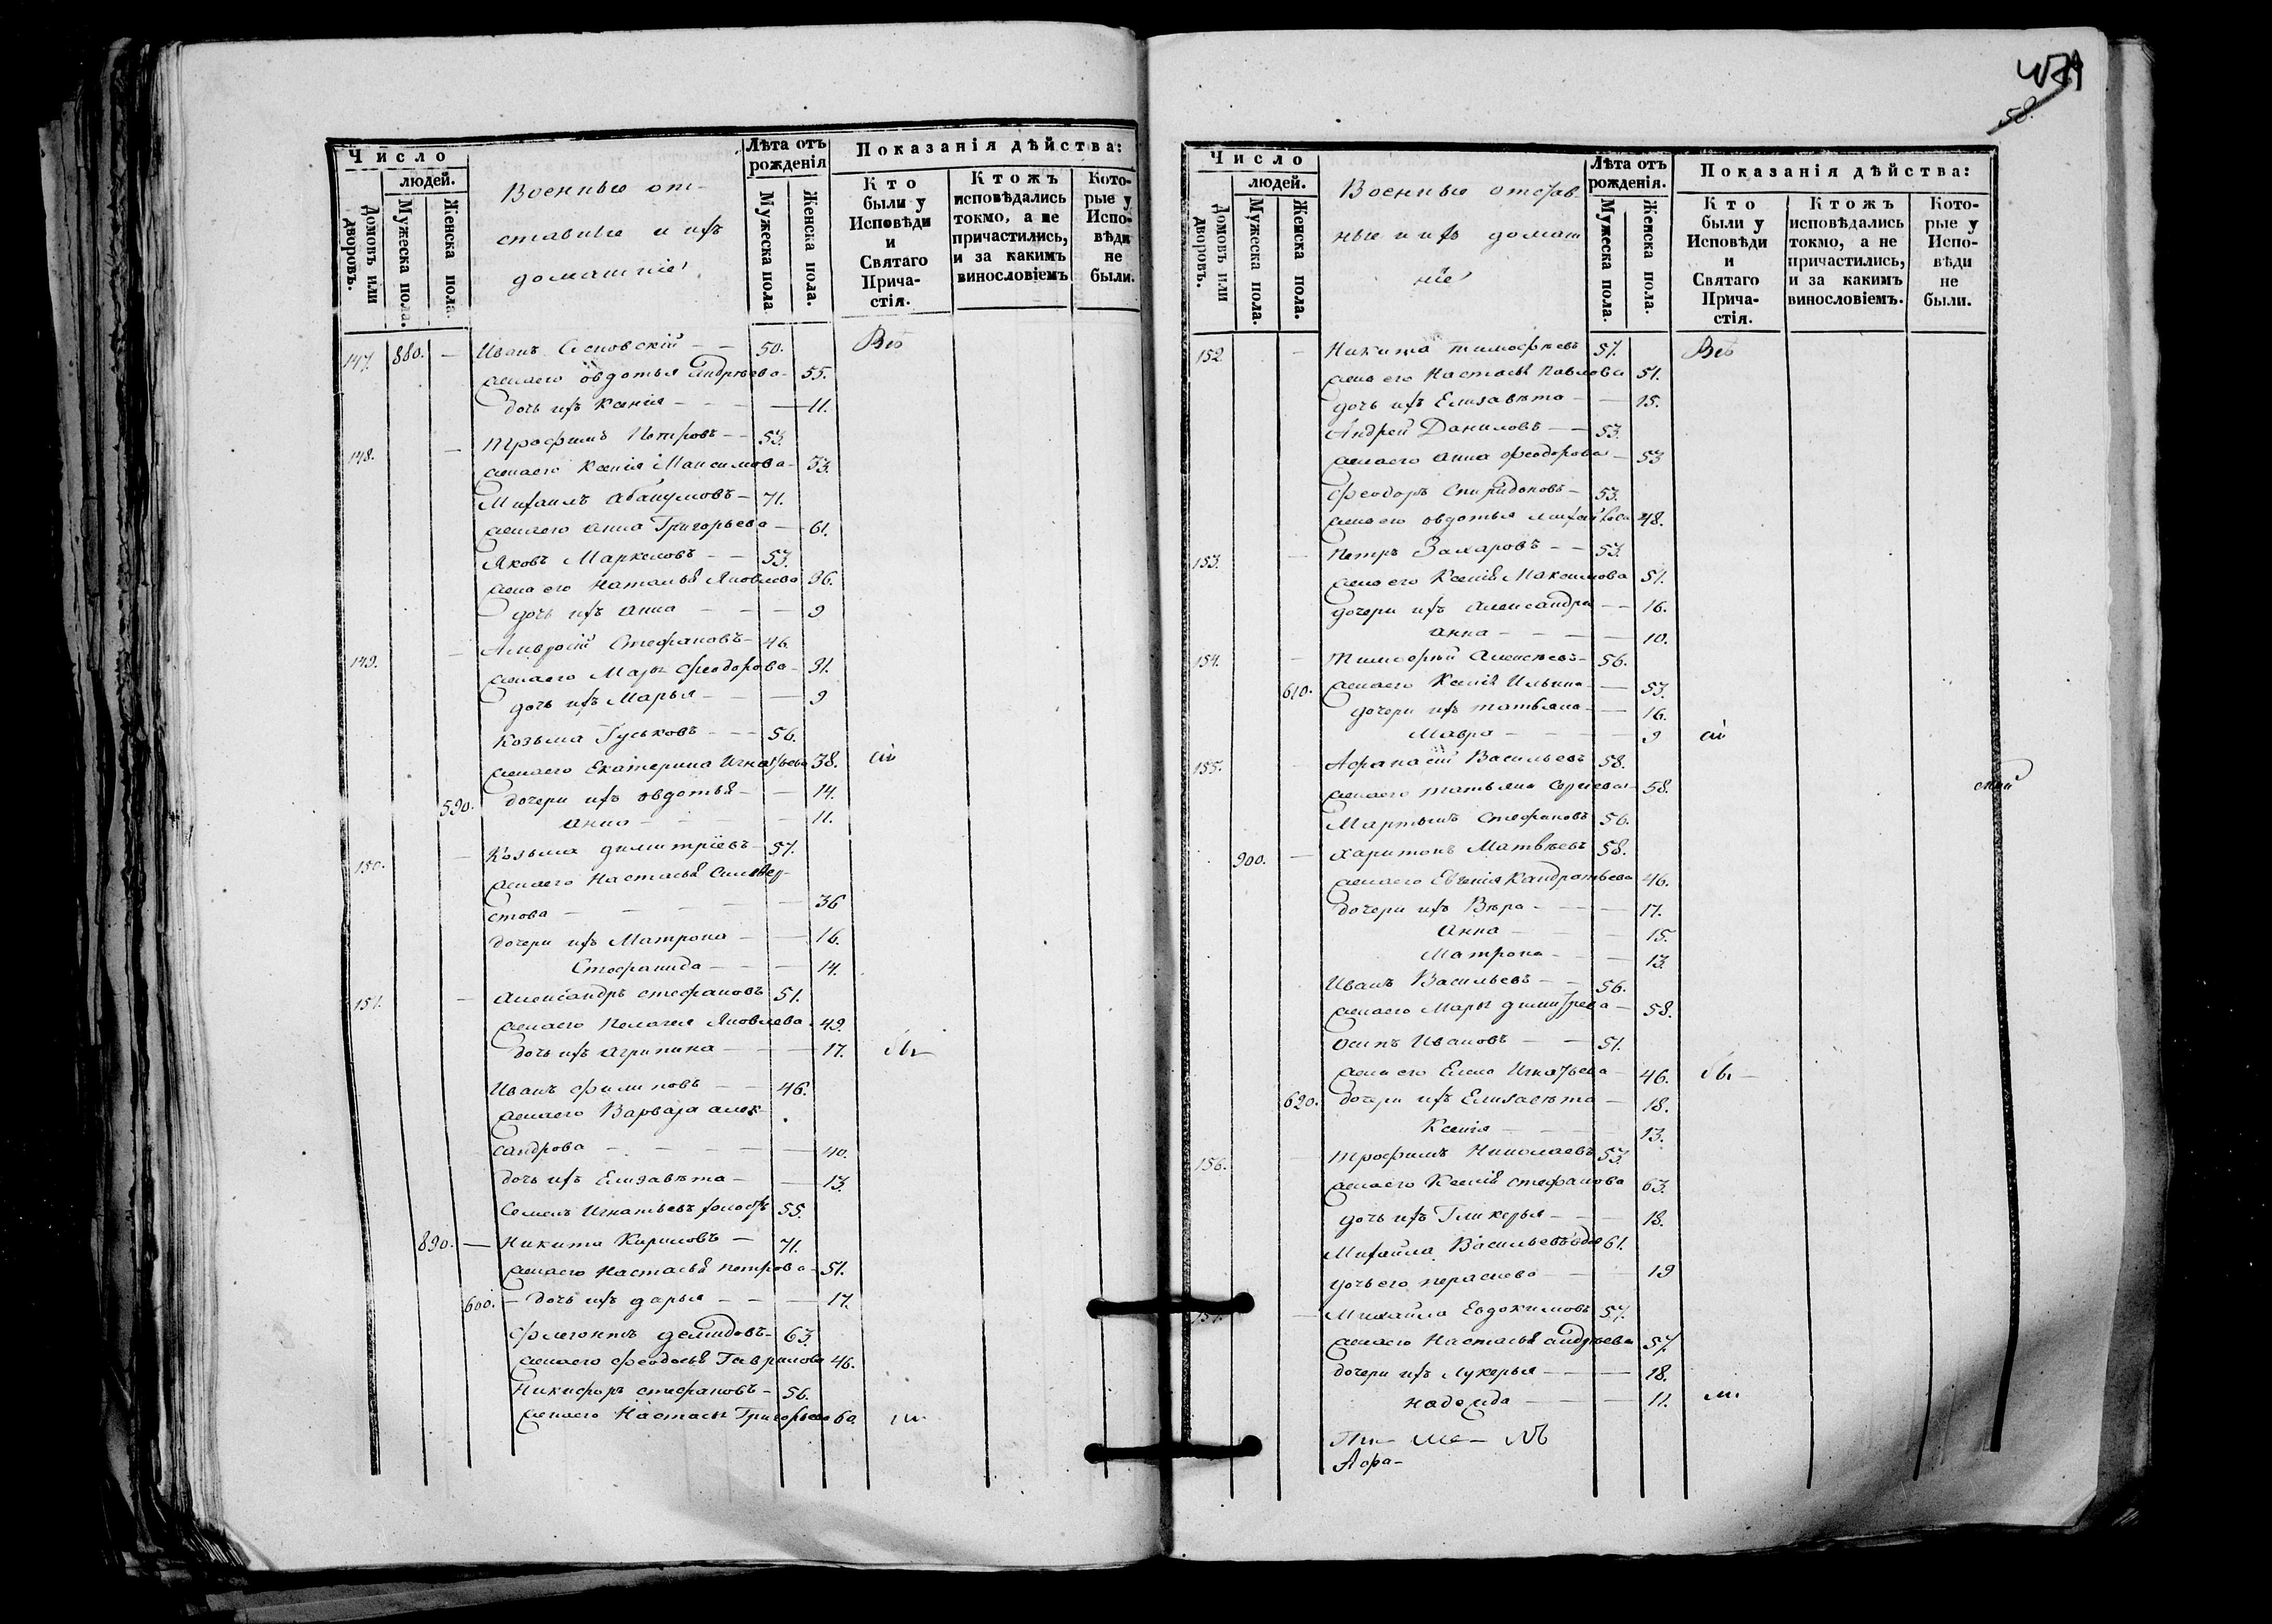 Число
людей.
Домовъ или дворовъ.
Мужеска пола.
Женска пола.
Военные от-
ставные и ихъ
домашніе
Лѣта отъ рожденія
Мужеска пола
Женска пола.
Показанія дѣйства:
Кто были у Исповѣди и Святаго Прича-стія.
Ктожъ исповѣдались токмо, а не причастились, и за какимъ винословіемъ
Кото-рые у Испо-вѣди не были.
147. 880. — Иванъ Сосновскій — — 50. Всѣ
жена его Овдотья Андреева — 55.
дочь ихъ Ксенія — — — 11.
148. — Трофимъ Петровъ — — 53.
жена его Ксенія Максимова — 53.
Михаилъ Абакумовъ — 71.
жена его Анна Григорьева — 61.
Яковъ Маркеловъ — — 53.
жена его Наталья Яковлева 36.
дочь ихъ Анна — — — 9
149. — Амвросій Стефановъ — 46.
жена его Марья Феодорова — 31.
дочь ихъ Марья — — 9
Козьма Гуськовъ — — — 56.
жена его Екатерина Игнатьева 38.
590. дочери ихъ Овдотья — — 14.
Анна — — — — 11.
150. — Козьма Димитріевъ — 57.
жена его Настасья Сильвер-
стова — — — — — 36
дочери ихъ Матрона — — 16.
Стефанида — — — 14.
151. — Александръ Стефановъ 51.
жена его Пелагея Яковлева 49.
дочь ихъ Агрипина — — — 17.
Иванъ Филиповъ — — 46.
жена его Варвара Алек-
сандрова — — — — — 40.
дочь ихъ Елизавѣта — — 13.
Семенъ Игнатьевъ холостъ 55.
890. — Никита Кириловъ — 71.
жена его Настасья Петрова — 51.
600. — дочь ихъ Дарья — — — 17.
Флегонтъ Демидовъ — 63.
жена его Феодосья Гаврилова 46.
Никифоръ Стефановъ — 56.
жена его Настасья Григорьева 60
58.
Число
людей.
Домовъ или дворовъ.
Мужеска пола.
Женска пола.
Военные отстав
ные и ихъ домаш
ніе
Лѣта отъ рожденія.
Мужеска пола.
Женска пола.
Показанія дѣйства:
Кто были у Исповѣди и Святаго Прича-стія.
Ктожъ исповѣдались токмо, а не причастились, и за какимъ винословіемъ.
Кото-рые у Испо-вѣди не были.
152. — Никита Тимофѣевъ 57. Всѣ
жена его Настасья Павлова 51.
дочь ихъ Елизавѣта — — 15.
Андрей Даниловъ — — 53.
жена его Анна Феодорова — 53
Феодоръ Спиридоновъ — 53.
жена его Овдотья Михайлова 48.
153. — Петръ Захаровъ — — 53.
жена его Ксенія Максимова 51.
дочери ихъ Александра — — 16.
Анна — — — — 10.
154. — Тимофей Алексѣевъ — 56.
610. жена его Ксенія Ильина — — 53.
дочери ихъ Татьяна — — 16.
Мавра — — — — 9
155. — Афанасій Васильевъ 58.
жена его Татьяна Сергіева — 58.
Мартынъ Стефановъ 56.
900. — Харитонъ Матвѣевъ 58.
жена его Евгенія Кандратьева 46.
дочери ихъ Вѣра — — — 17.
Анна — — — 15.
Матрона — — — 13.
Иванъ Васильевъ — — 56.
жена его Марья Димитрева — 58.
Осипъ Ивановъ — — 51.
жена его Елена Игнатьева — 46.
620. дочери ихъ Елизавѣта — 18.
Ксенія — — — — 13.
156. — Трофимъ Николаевъ 53.
жена его Ксенія Стефанова 63.
дочь ихъ Гликерья — — 18.
Михайла Васильевъ вдов 61.
дочь его — — 19
157. — Михайла Евдокимовъ 57.
жена его Настасья Андреева 57.
дочери ихъ Лукерья — — — 18.
Надежда — — — 11.